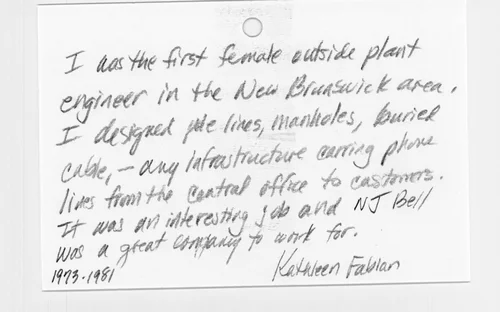 I was the first female outside plant
engineer in the New Brunswick area.
I designed pole lines, manholes, buried
cable, – any infrastructure carring phone
lines from the central office to customers.
It was an interesting job and NJ Bell
was a great company to work for.
1973-1981 Kathleen Fabian